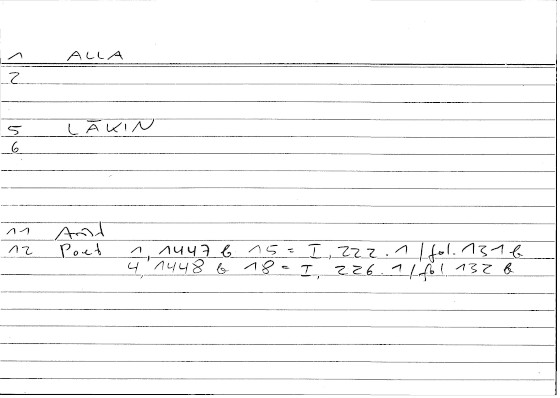 1 ALLA
2
5 LĀKIN
6
11 Arist
12 Poet 1, 1447 b 15 = I, 222.1 / fol. 131 b
4, 1448 b 18 = I, 226.1 / fol. 132 b